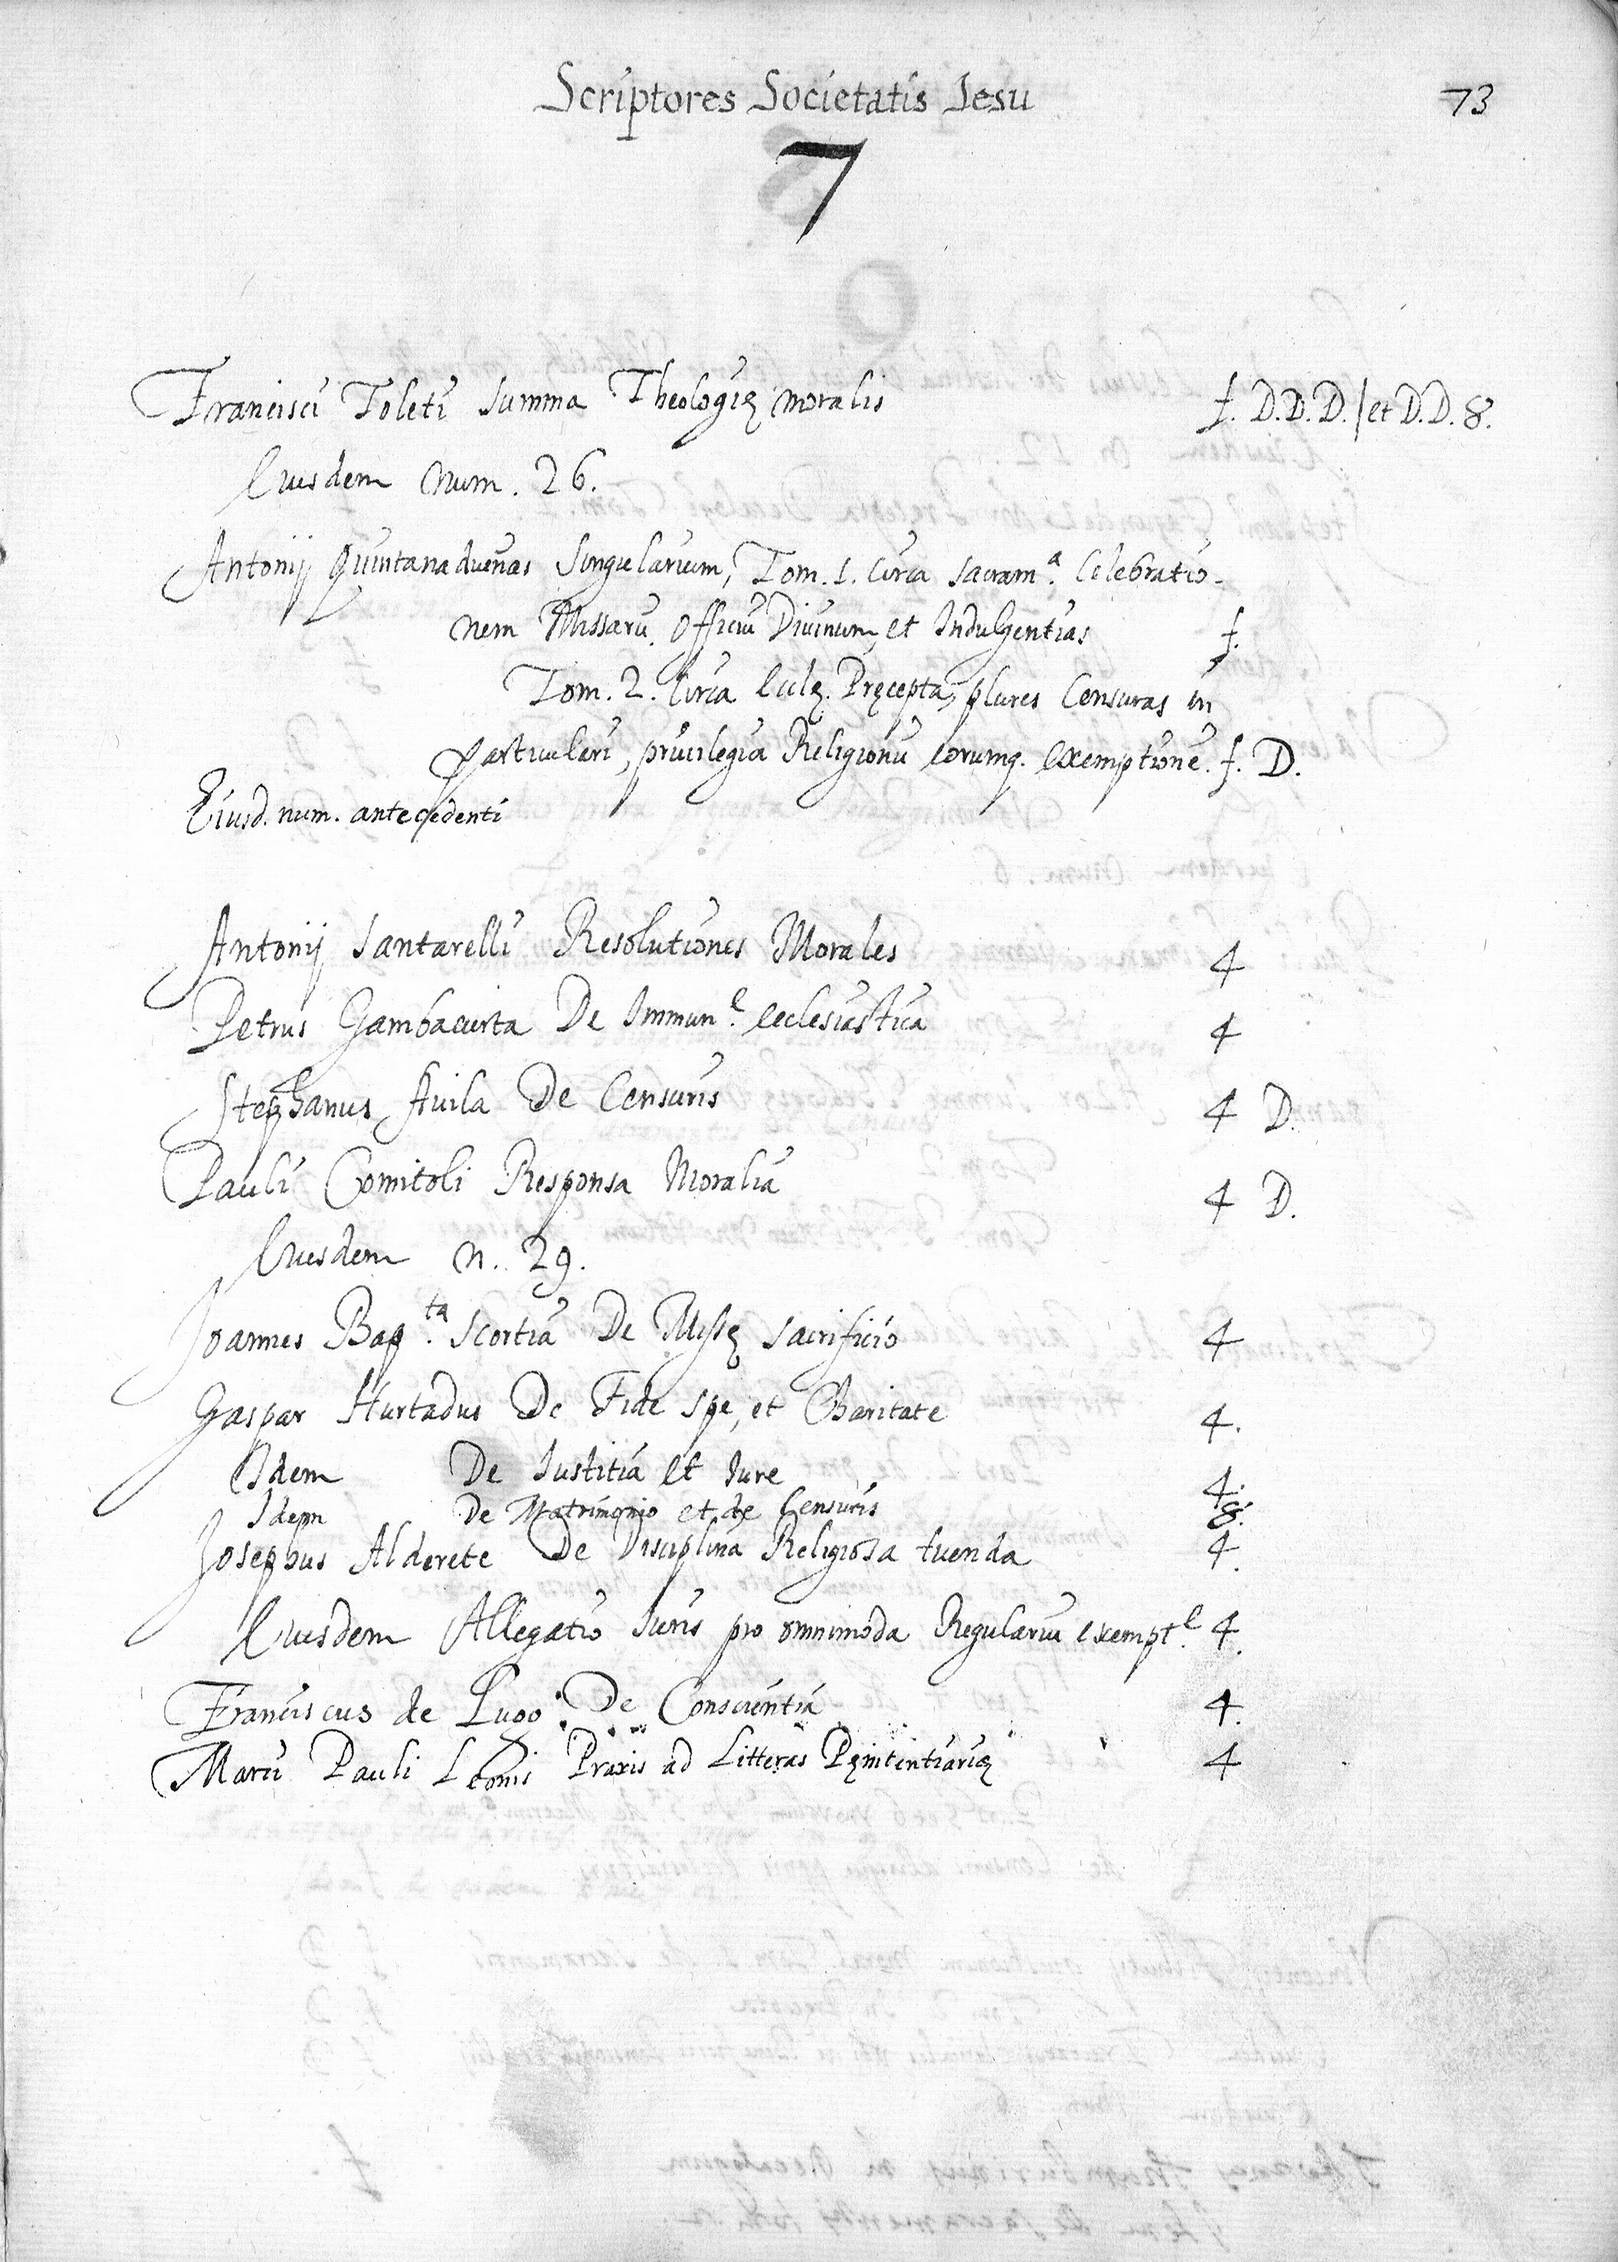 Scriptores Societatis Jesu 73
7
Francisci Toleti Summa Theologię moralis f. D.D.D./et D.D. 8.
Eiusdem num. 26.
Antonij Quintanadueñas Singularium, Tom. 1. Circa sacram.ª Celebratio-
nem Missarū Officiū Divinum, et Indulgentias f.
Tom. 2. Circa Eccłę. Pręcepta, plures Censuras in
particulari, privilegia Religionū eorumq. exemptionē. f. D.
Eiusd. num. antecedenti
Antonij Santarelli Resolutiones Morales 4
Petrus Gambacurta De Immun.e Ecclesiastica 4
Stephanus Avila De Censuris 4 D.
Pauli Comitoli Responsa Moralia 4 D.
Eiusdem n. 29.
Joannes Bap.ta Scortia De Missę sacrificio 4
Gaspar Hurtadus De Fide spe, et Charitate 4.
Idem De Justitia et Jure 4.
Idem De Matrimonio et de Censuris 8.
Josephus Alderete De Disciplina Religiosa tuenda 4.
Eiusdem Allegatio Juris pro omnimoda Regulariū exempt.e 4.
Franciscus de Lugo De Conscientia 4.
Marii Pauli Leonis Praxis ad Litteras Pęnitentiarię 4